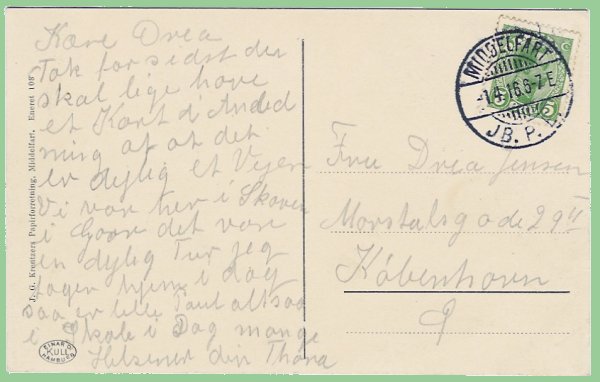 Kære Drea
Tak for sidst du
skal lige have
et Kort i Anled
ning af at det
er dejlig et Vejer
Vi var her i Skoven
i Gaar det var
en dejlig Tur jeg
tager hjem i dag
saa er lille Paul altsaa
i Skole i Dag mange
Hilsener din Thora
Fru Drea Jensen
Marstalsgade 29
København
Ø
MIDDELFART
-1.4.16.6-7E
JB. P. E.
5
5
J. G. Kreutzers Papirforretning, Middelfart. Eneret 108
EINAR D.
KULI
HAMBURG